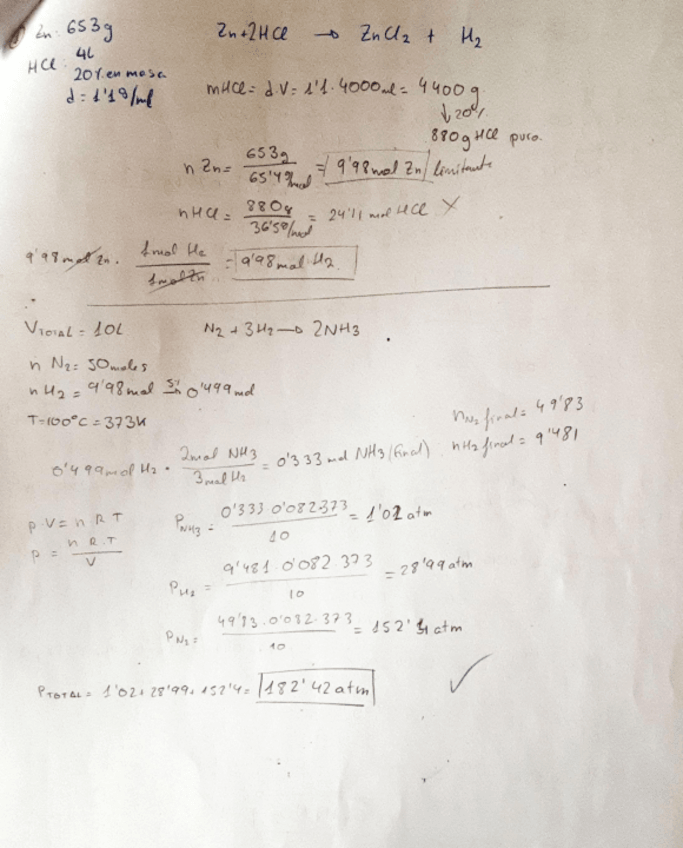 Zn: 653g
Zn + 2HCl → ZnCl2 + H2
HCl: 4L
20% en masa
d = 1'18/ml
mHCl = d.V = 1'1 . 4000ml = 4400g
↓ 20%
880g HCl puro.
n Zn = 653g / 65'4g/mol = 9'98 mol Zn limitante
nHCl = 880g / 36'5g/mol = 24'11 mol HCl X
9'98 mol Zn . 1 mol H2 / 1 mol Zn = 9'98 mol H2
VTOTAL = 10L
N2 + 3H2 → 2NH3
n N2 = 50 moles
n H2 = 9'98 mol 5% → 0'499 mol
T = 100°C = 373K
nN2 final = 49'83
nH2 final = 9'481
0'499 mol H2 . 2 mol NH3 / 3 mol H2 = 0'333 mol NH3 (final)
p.V = n R T
p = n R.T / V
PNH3 = 0'333.0'082.373 / 10 = 1'02 atm
PH2 = 9'481.0'082.373 / 10 = 28'99 atm
PN2 = 49'83.0'082.373 / 10 = 152'41 atm
PTOTAL = 1'02 + 28'99 + 152'4 = 182'42 atm ✓